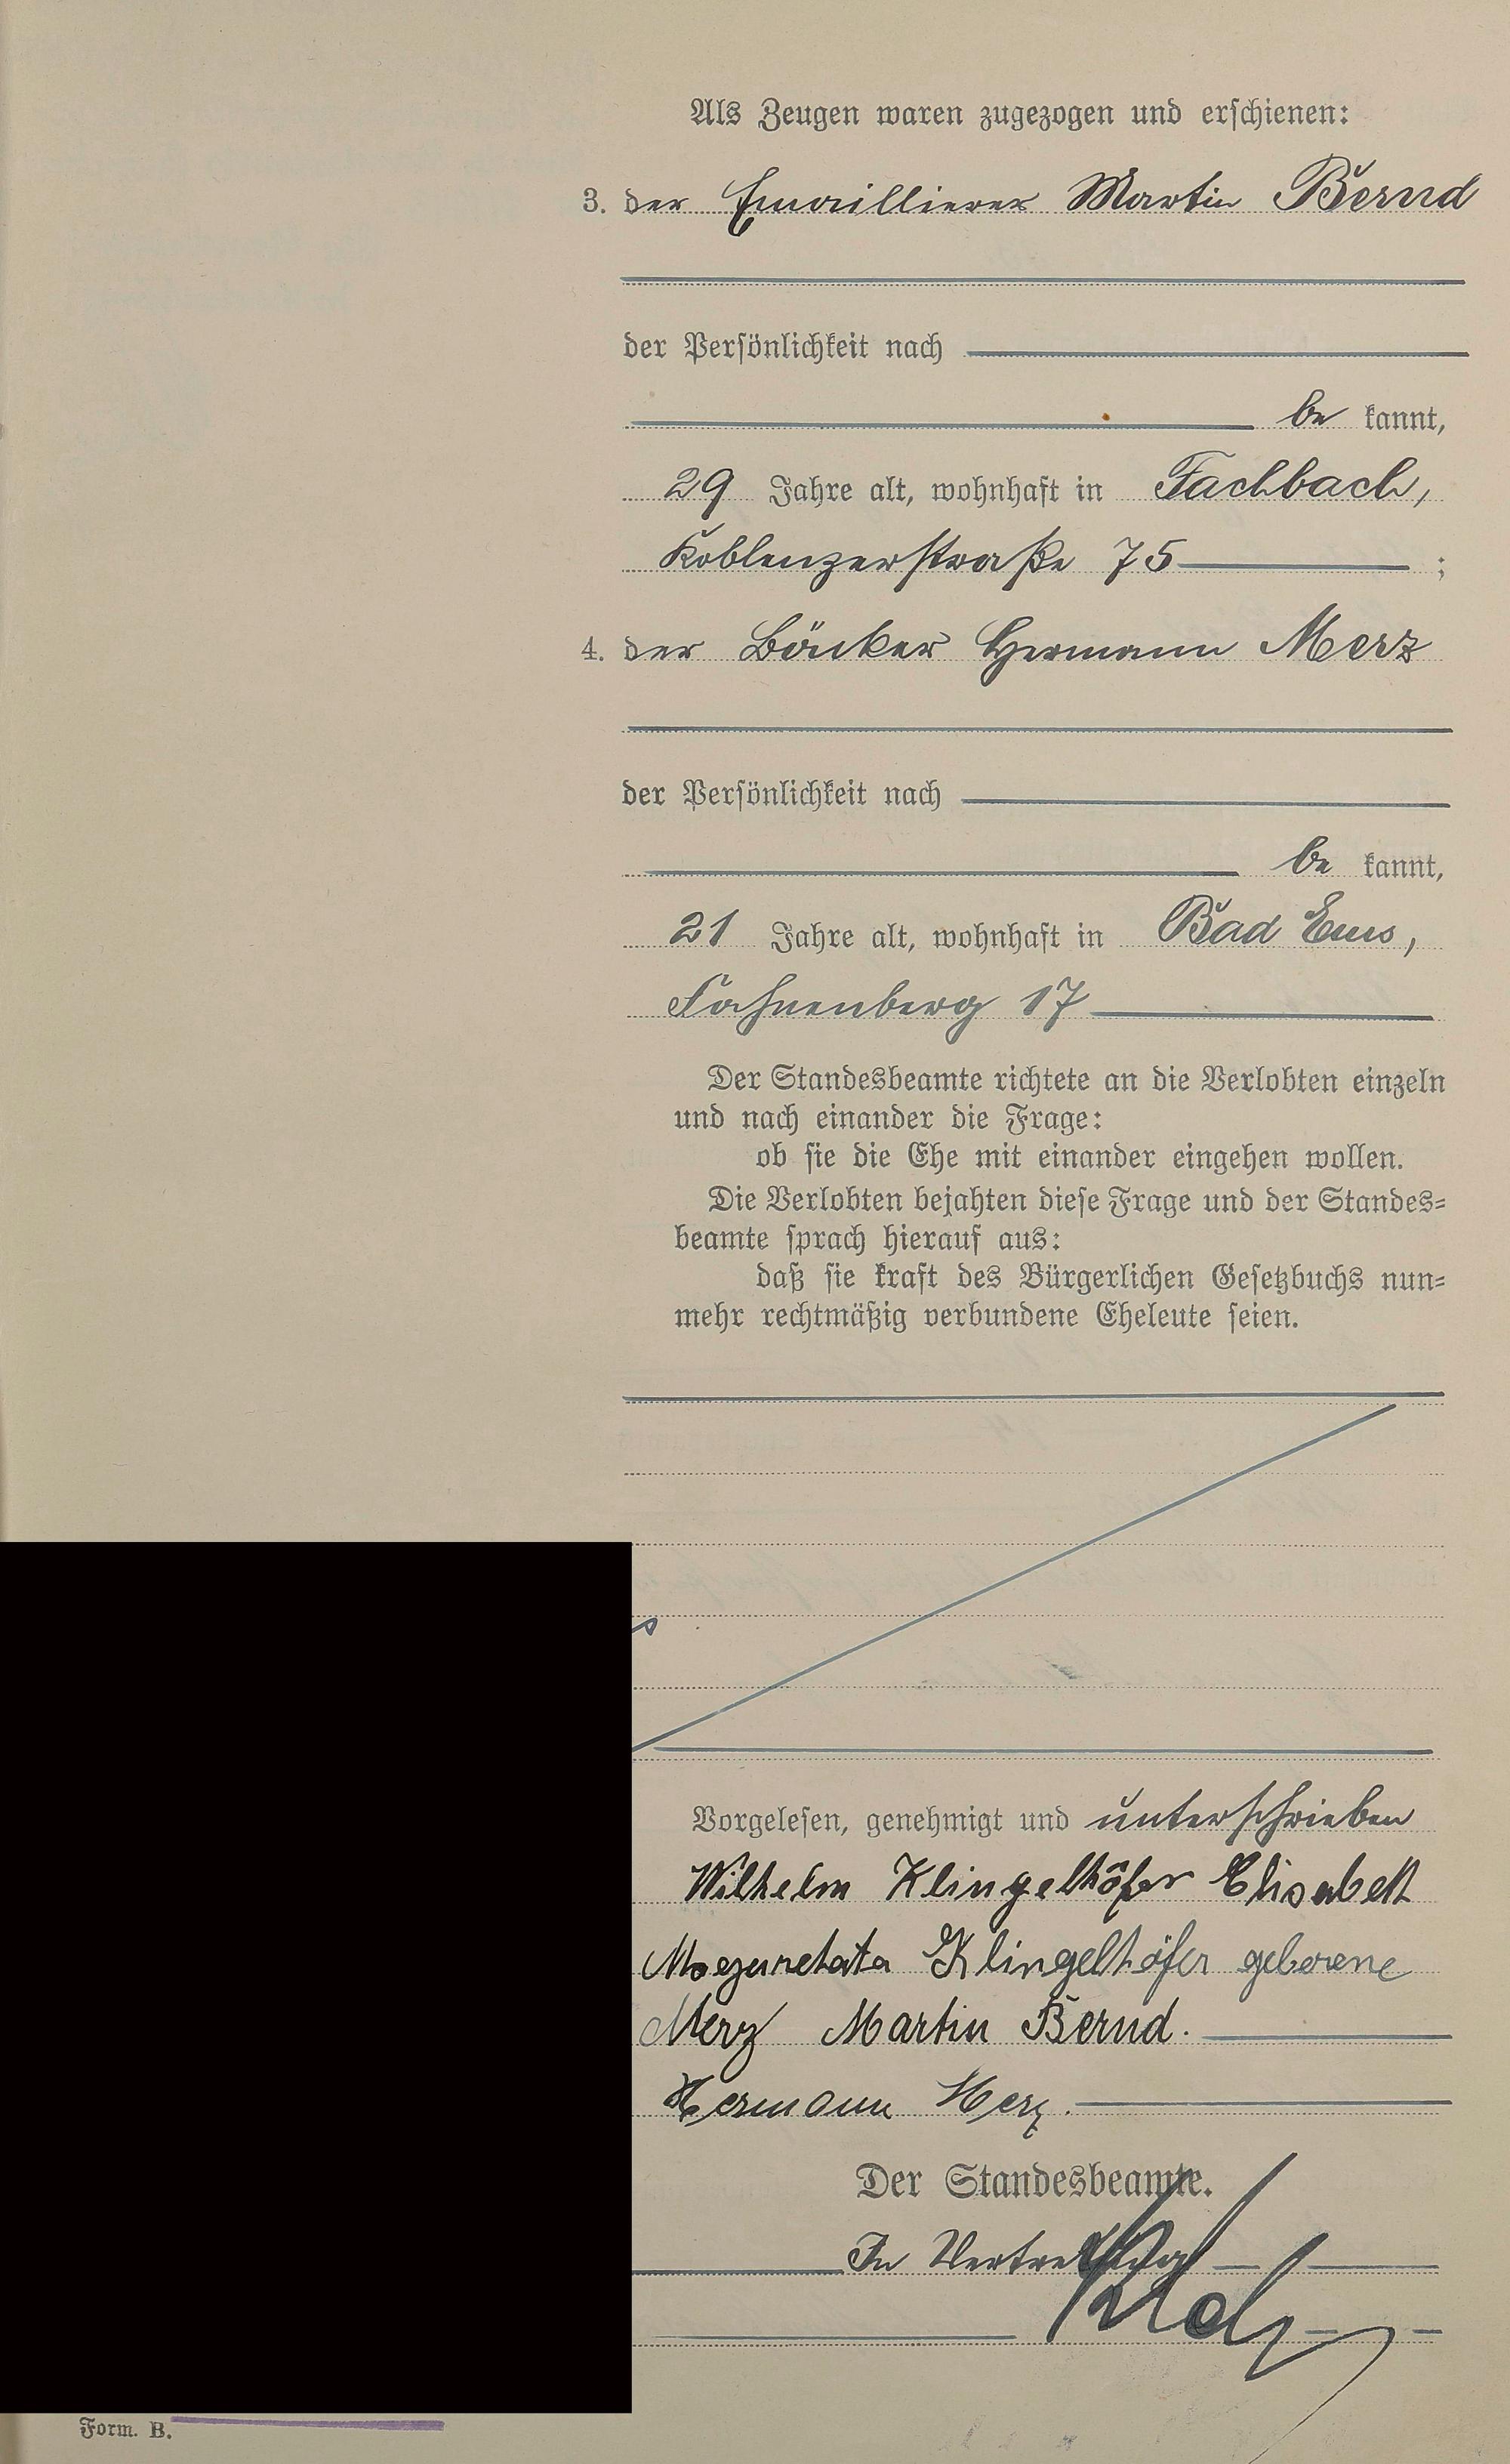 Als Zeugen waren zugezogen und erschienen:
3. der Emaillierer Martin Bernd
der Persönlichkeit nach
be kannt,
29 Jahre alt, wohnhaft in Fachbach,
Koblenzerstraße 75 ;
4. der Bäcker Hermann Merz
der Persönlichkeit nach
be kannt,
21 Jahre alt, wohnhaft in Bad Ems,
Fahnenberg 17
Der Standesbeamte richtete an die Verlobten einzeln
und nach einander die Frage:
ob sie die Ehe mit einander eingehen wollen.
Die Verlobten bejahten diese Frage und der Standes-
beamte sprach hierauf aus:
daß sie kraft des Bürgerlichen Gesetzbuchs nun-
mehr rechtmäßig verbundene Eheleute seien.
Vorgelesen, genehmigt und unterschrieben
Wilhelm Klingelhöfer Elisabeth
Klingelhöfer geborene
Merz Martin Bernd.
Hermann Merz.
Der Standesbeamte.
In Vertretung
Form. B.